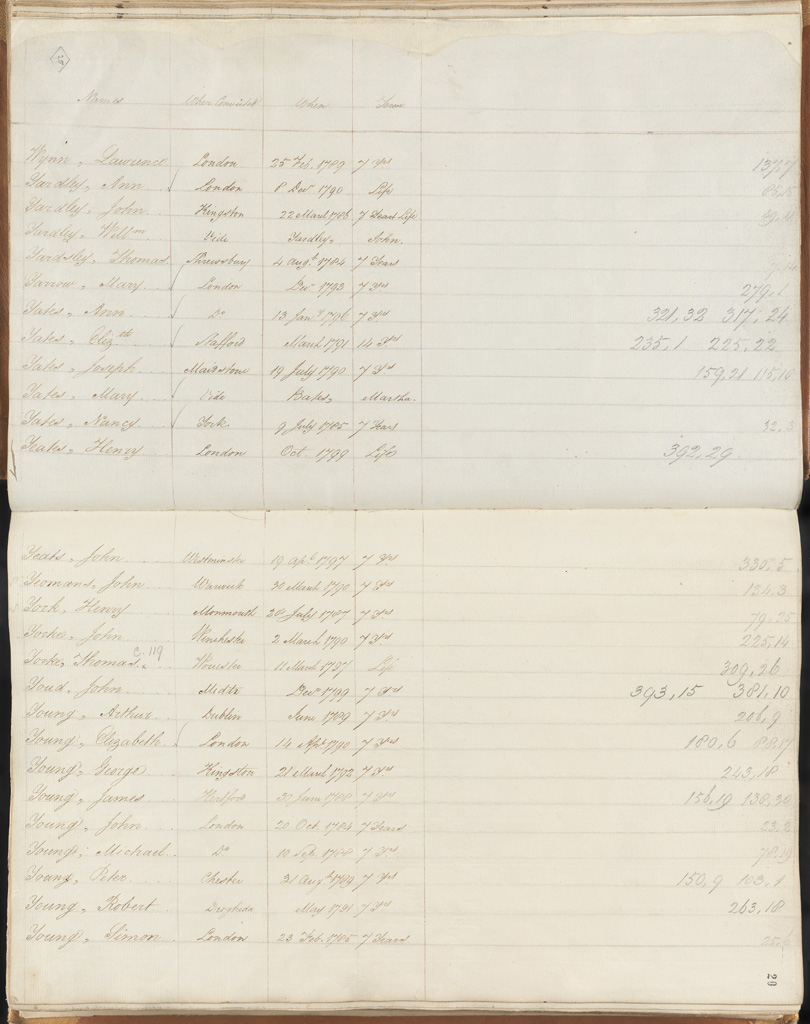 Names Where Convicted When Term
Wynn, Lawrence London 25 Feb. 1789 7 Yrs 137,7
Yardley, Ann London 8 Decr 1790 Life
Yardley, John Kingston 22 March 1786 7 Years Life
Yardley, Willm Vide Yardley, John.
Yardsley, Thomas Shrewsbury 4 Augt. 1784 7 Years
Yarrow, Mary London Decr 1793 7 Yrs 279,1
Yates, Ann Do 13 Jany 1796 7 Yrs 321,32 317,24
Yates, Elizth Stafford March 1791 14 Yrs 235,1 225,22
Yates, Joseph Maidstone 19 July 1790 7 Yrs 159,21
Yates, Mary Vide Bates, Martha.
Yates, Nancy York 9 July 1785 7 Years
Yeates, Henry London Oct. 1799 Life 392,29
Yeats, John Westminster 19 Apl. 1797 7 Yrs 330,5
Yeomans, John Warwick 30 March 1790 7 Yrs 134,3
York, Henry Monmouth July 1787 7 Yrs 79,25
Yorke, John Winchester 2 March 1790 7 Yrs 225,14
Yorke, Thomas, C.119 Worcester 11 March 1797 Life 309,26
Youd, John Middx Decr 1799 7 Yrs 393,15 381,10
Young, Arthur Dublin June 1789 7 Yrs 206,9
Young, Elizabeth London 14 Apl 1790 7 Yrs 180,6
Young, George Kingston 21 March 1792 7 Yrs 243,18
Young, James Hertford 7 Yrs 156,19 138,30
Young, John London 20 Oct. 1784 7 Years
Young, Michael Do 10 Sep. 7 Yrs
Young, Peter Chester 31 Augt 1789 7 Yrs 150,9
Young, Robert Drogheda May 1791 7 Yrs 263,18
Young, Simon London 23 Feb. 1785 7 Years
20